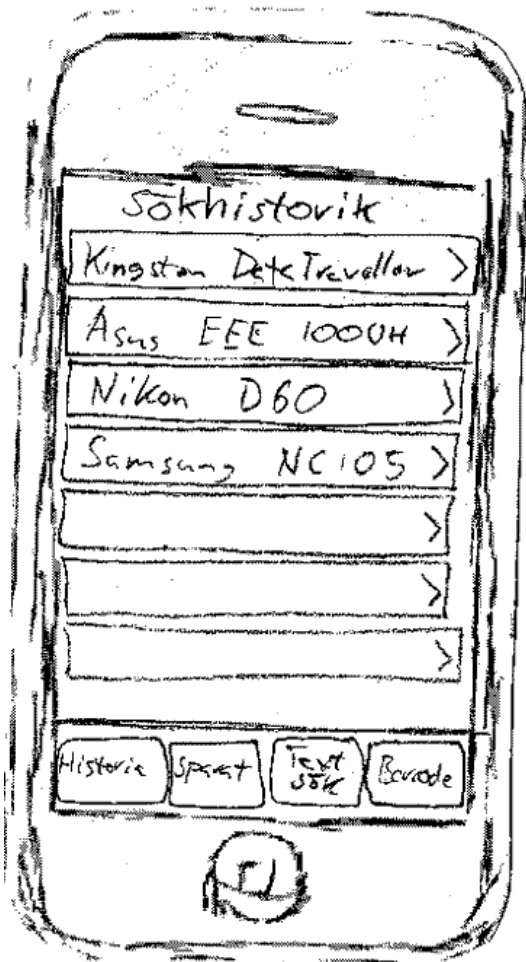 Sökhistorik
Kingston DataTravellor
Asus EEE 1000H
Nikon D60
Samsung NC105
Historia
Sparat
Text
sök
Barcode